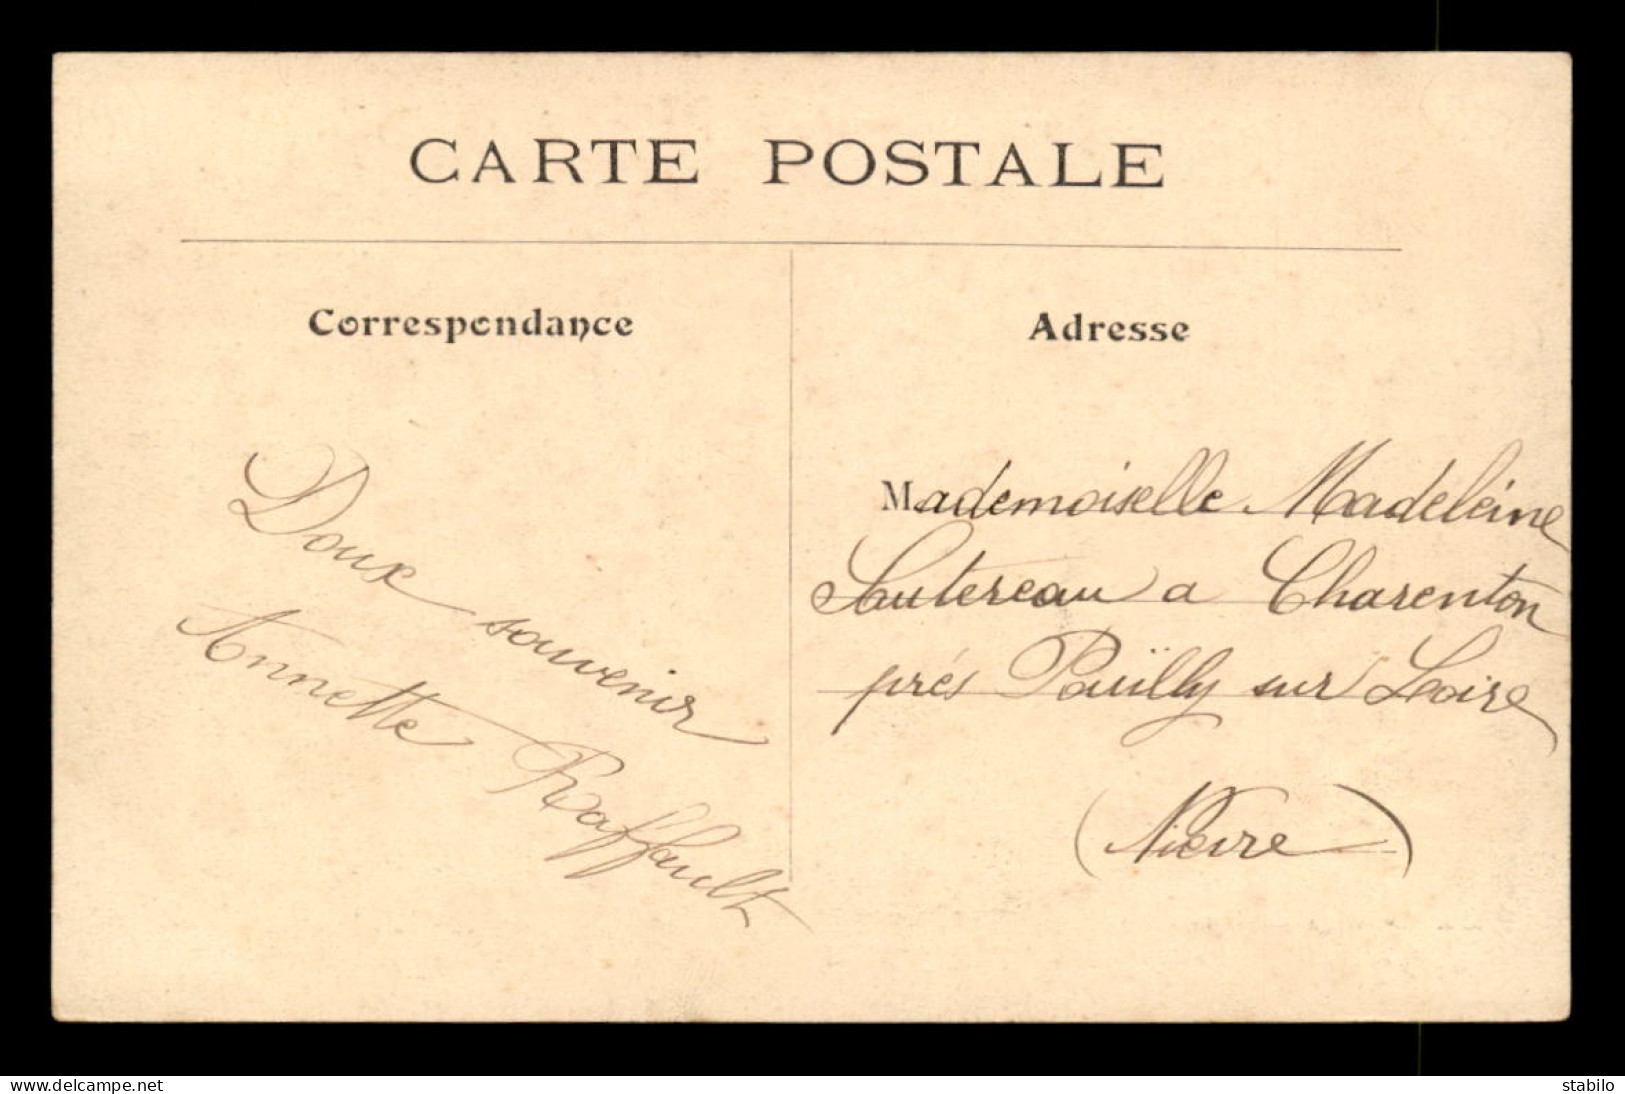 CARTE POSTALE
Correspondance
Doux souvenir
Annette Raffault
Adresse
Mademoiselle Madeleine
Sautereau a Charenton
prés Pouilly sur Loire
(Nièvre)
www.delcampe.net
stabilo